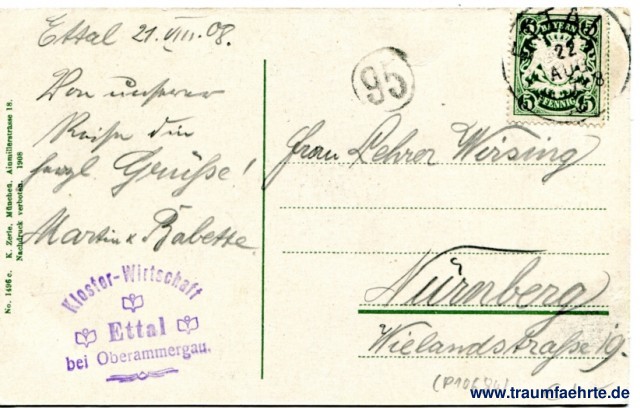 Ettal 21.VIII.08.
Von unserer
Reise die
herzl Grüsse!
Martin & Babette.
Kloster-Wirtschaft
Ettal
bei Oberammergau.
No. 1496 c. K. Zerle, München, Ainmillerstrasse 18.
Nachdruck verboten. 1908
95
BAYERN
5 PFENNIG 5
ETTAL
22
AUG 08
Frau Lehrer Weising
Nürnberg
Wielandstraße 19.
www.traumfaehrte.de